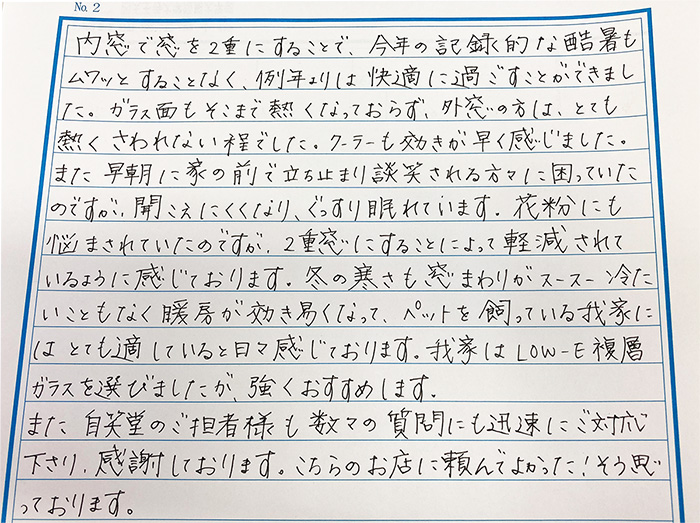 No. 2
内窓で窓を2重にすることで、今年の記録的な酷暑も
ムワッとすることなく、例年よりは快適に過ごすことができまし
た。ガラス面もそこまで熱くなっておらず、外窓の方は、とても
熱くさわれない程でした。クーラーも効きが早く感じました。
また早朝に家の前で立ち止まり談笑される方々に困っていた
のですが、聞こえにくくなり、ぐっすり眠れています。花粉にも
悩まされていたのですが、2重窓にすることによって軽減されて
いるように感じております。冬の寒さも窓まわりがスースー冷た
いこともなく暖房が効き易くなって、ペットを飼っている我家に
はとても適していると日々感じております。我家はLOW-E複層
ガラスを選びましたが、強くおすすめします。
また自笑堂のご担者様も数々の質問にも迅速にご対応
下さり、感謝しております。こちらのお店に頼んでよかった!そう思
っております。